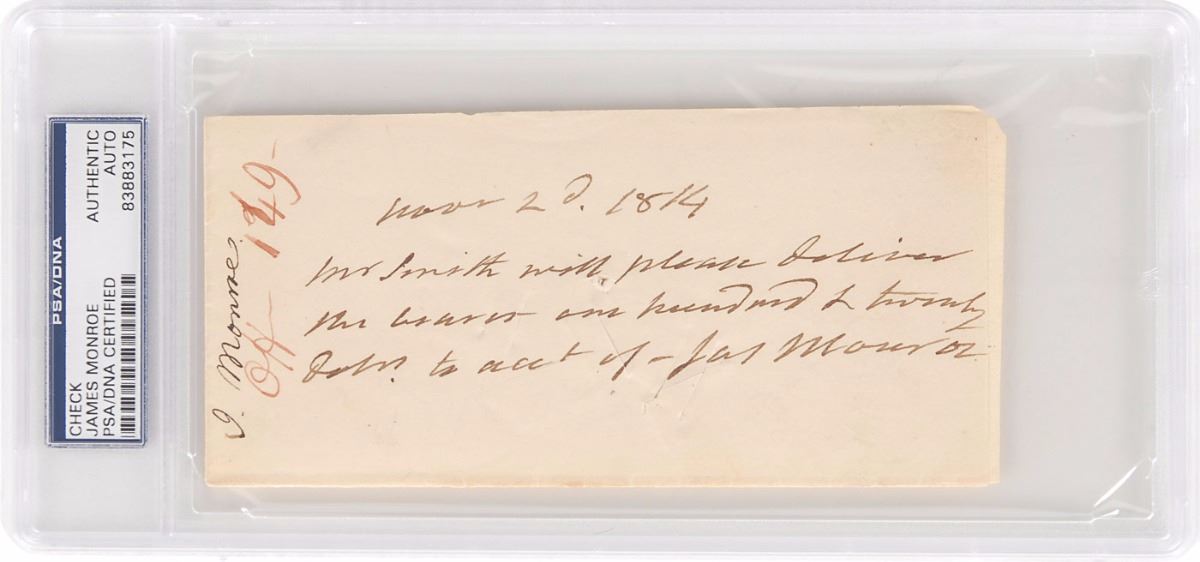 PSA/DNA
CHECK
JAMES MONROE
PSA/DNA CERTIFIED
AUTHENTIC
AUTO
83883175
J. Monroe.
149-
Novr 2d. 1814
Mr Smith will please deliver
the bearer one hundred & twenty
dolrs. to acct of - Jas Monroe